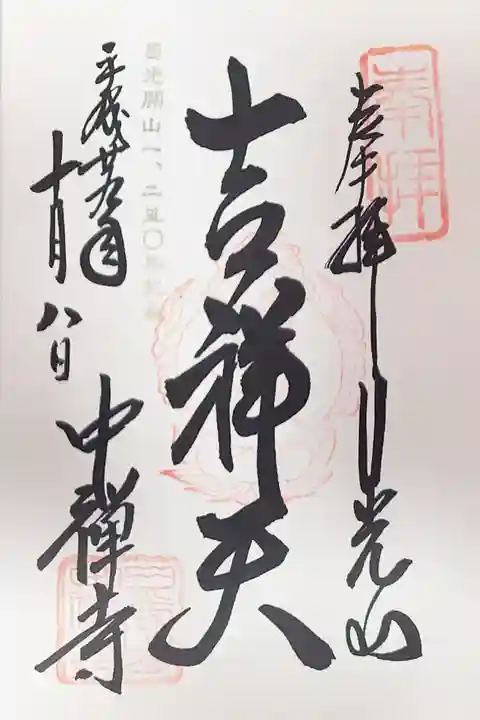 奉拝
奉拝 日光山
吉祥天
日光開山一、二五〇年記念
平成廿九年
十月八日
中禅寺